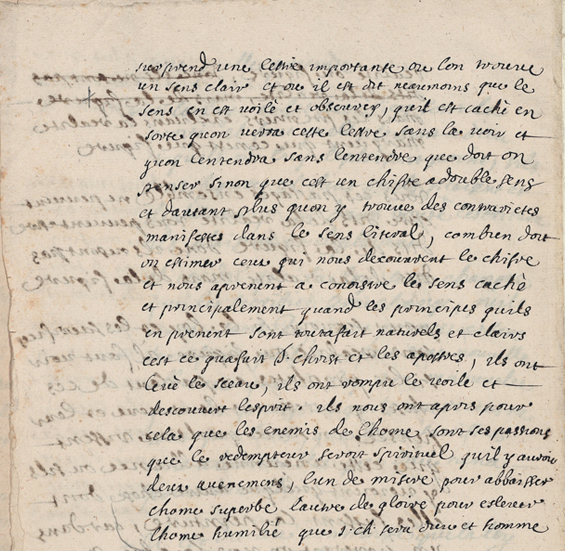 surprend une lettre importante ou lon trouve
un sens clair et ou il est dit neanmoins que le
sens en est voilé et obscurcy, quil est caché en
sorte quon verra cette lettre sans la voir et
quon lentendra sans lentendre que doit on
penser sinon que cest un chifre a double sens
et dautant plus quon y trouve des contrarietes
manifestes dans le sens literal, combien doit
on estimer ceux qui nous decouvrent le chifre
et nous aprenent a conoistre le sens caché
et principalement quand les principes quils
en prenent sont toutafait naturels et clairs
cest ce quafait J. christ et les apostres, ils ont
levé le sceau, ils ont rompu le voile et
descouvert lesprit. ils nous ont apris pour
cela que les enemis de lhome sont ses passions
que le redempteur seroit spirituel quil y auroit
deux avenemens, lun de misere pour abbaisser
lhome superbe lautre de gloire pour eslever
lhome humilié que J. ch sera dieu et homme